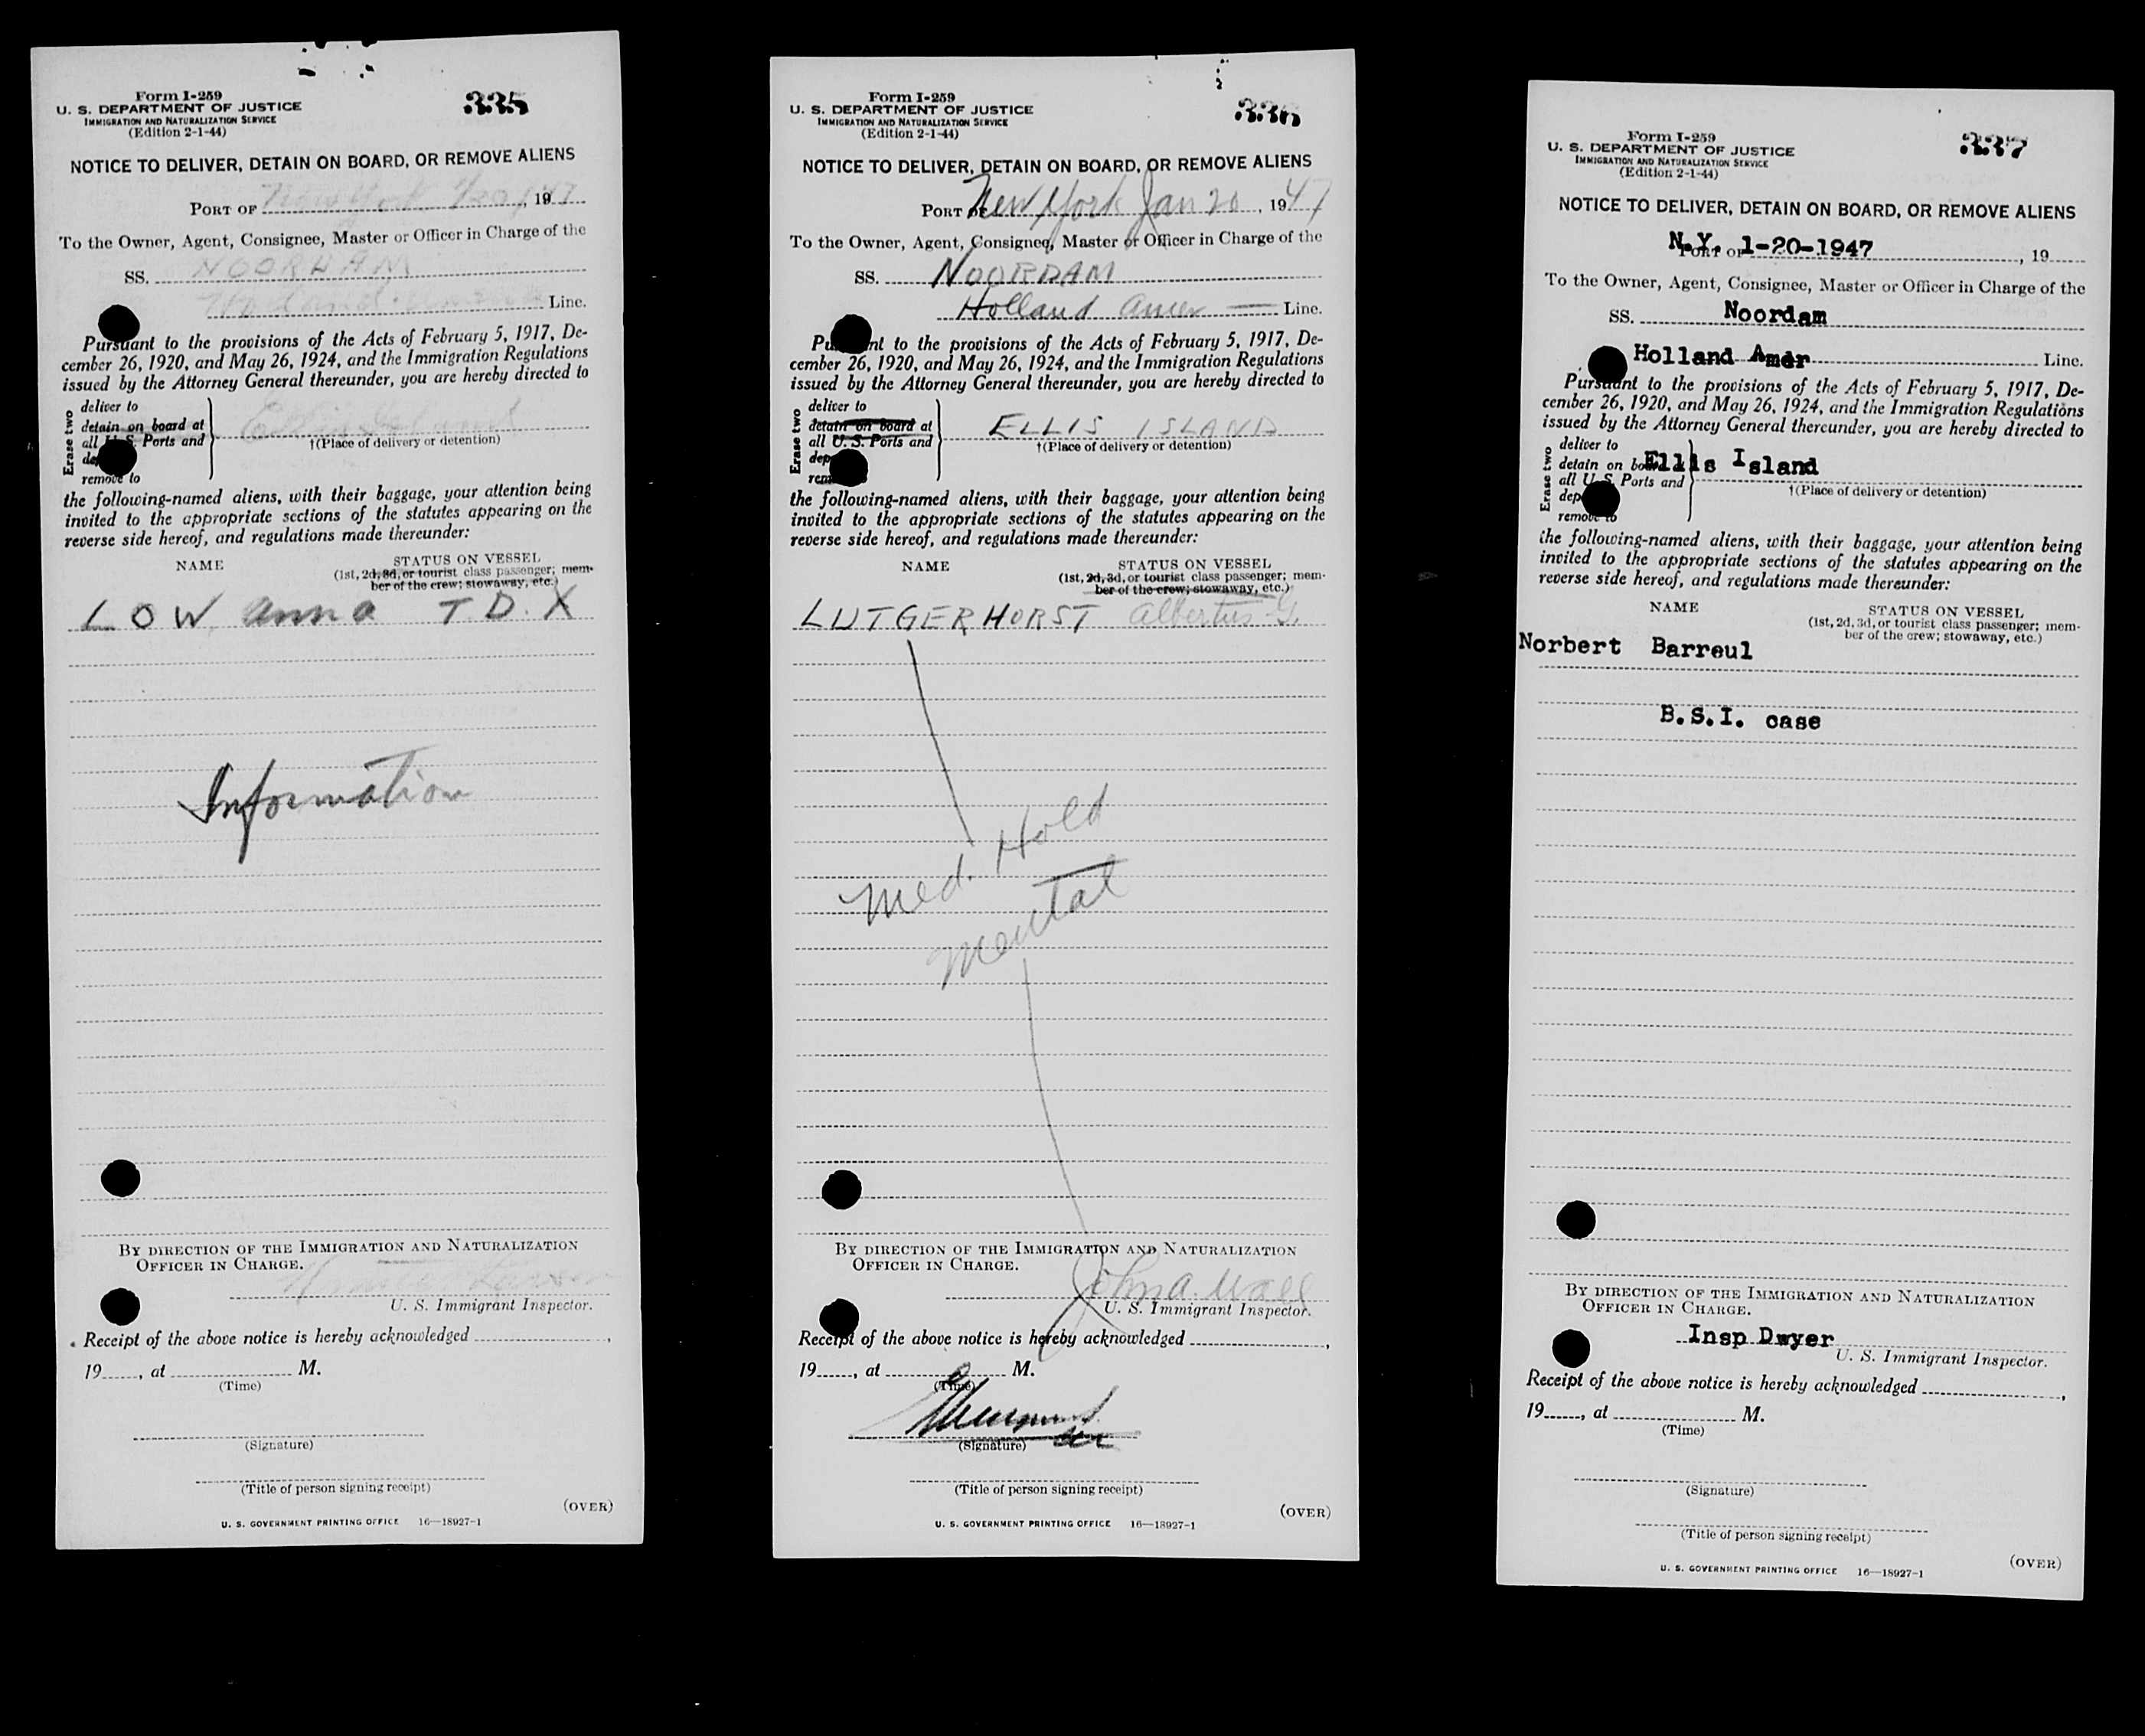 Form I-259
U. S. DEPARTMENT OF JUSTICE
IMMIGRATION AND NATURALIZATION SERVICE
(Edition 2-1-44)
335
NOTICE TO DELIVER, DETAIN ON BOARD, OR REMOVE ALIENS
PORT OF New York 1/20/47, 19
To the Owner, Agent, Consignee, Master or Officer in Charge of the
SS. NOORDAM
Holland Line.
Pursuant to the provisions of the Acts of February 5, 1917, De-
cember 26, 1920, and May 26, 1924, and the Immigration Regulations
issued by the Attorney General thereunder, you are hereby directed to
Erase two
deliver to
detain on board at
all U. S. Ports and
remove to
Ellis Island
†(Place of delivery or detention)
the following-named aliens, with their baggage, your attention being
invited to the appropriate sections of the statutes appearing on the
reverse side hereof, and regulations made thereunder:
NAME
STATUS ON VESSEL
(1st, 2d, 3d, or tourist class passenger; mem-
ber of the crew; stowaway, etc.)
LOW Anna T.D.X
Information
BY DIRECTION OF THE IMMIGRATION AND NATURALIZATION
OFFICER IN CHARGE.
U. S. Immigrant Inspector.
Receipt of the above notice is hereby acknowledged ,
19 , at M.
(Time)
(Signature)
(Title of person signing receipt)
(OVER)
U. S. GOVERNMENT PRINTING OFFICE 16—18927-1
Form I-259
U. S. DEPARTMENT OF JUSTICE
IMMIGRATION AND NATURALIZATION SERVICE
(Edition 2-1-44)
336
NOTICE TO DELIVER, DETAIN ON BOARD, OR REMOVE ALIENS
PORT OF New York Jan 20, 1947
To the Owner, Agent, Consignee, Master or Officer in Charge of the
SS. NOORDAM
Holland Amer Line.
Pursuant to the provisions of the Acts of February 5, 1917, De-
cember 26, 1920, and May 26, 1924, and the Immigration Regulations
issued by the Attorney General thereunder, you are hereby directed to
Erase two
deliver to
detain on board at
all U. S. Ports and
dep
rem
ELLIS ISLAND
†(Place of delivery or detention)
the following-named aliens, with their baggage, your attention being
invited to the appropriate sections of the statutes appearing on the
reverse side hereof, and regulations made thereunder:
NAME
STATUS ON VESSEL
(1st, 2d, 3d, or tourist class passenger; mem-
ber of the crew; stowaway, etc.)
LUTGERHORST Albertus G.
Med. Hold
Mental
BY DIRECTION OF THE IMMIGRATION AND NATURALIZATION
OFFICER IN CHARGE.
John A. Wall
U. S. Immigrant Inspector.
Receipt of the above notice is hereby acknowledged ,
19 , at M.
(Time)
(Signature)
(Title of person signing receipt)
(OVER)
U. S. GOVERNMENT PRINTING OFFICE 16—18927-1
Form I-259
U. S. DEPARTMENT OF JUSTICE
IMMIGRATION AND NATURALIZATION SERVICE
(Edition 2-1-44)
337
NOTICE TO DELIVER, DETAIN ON BOARD, OR REMOVE ALIENS
PORT OF N.Y. 1-20-1947, 19
To the Owner, Agent, Consignee, Master or Officer in Charge of the
SS. Noordam
Holland Amer Line.
Pursuant to the provisions of the Acts of February 5, 1917, De-
cember 26, 1920, and May 26, 1924, and the Immigration Regulations
issued by the Attorney General thereunder, you are hereby directed to
Erase two
deliver to
detain on board
all U. S. Ports and
dep
remove to
Ellis Island
†(Place of delivery or detention)
the following-named aliens, with their baggage, your attention being
invited to the appropriate sections of the statutes appearing on the
reverse side hereof, and regulations made thereunder:
NAME
STATUS ON VESSEL
(1st, 2d, 3d, or tourist class passenger; mem-
ber of the crew; stowaway, etc.)
Norbert Barreul
B.S.I. case
BY DIRECTION OF THE IMMIGRATION AND NATURALIZATION
OFFICER IN CHARGE.
Insp Dwyer
U. S. Immigrant Inspector.
Receipt of the above notice is hereby acknowledged ,
19 , at M.
(Time)
(Signature)
(Title of person signing receipt)
(OVER)
U. S. GOVERNMENT PRINTING OFFICE 16—18927-1